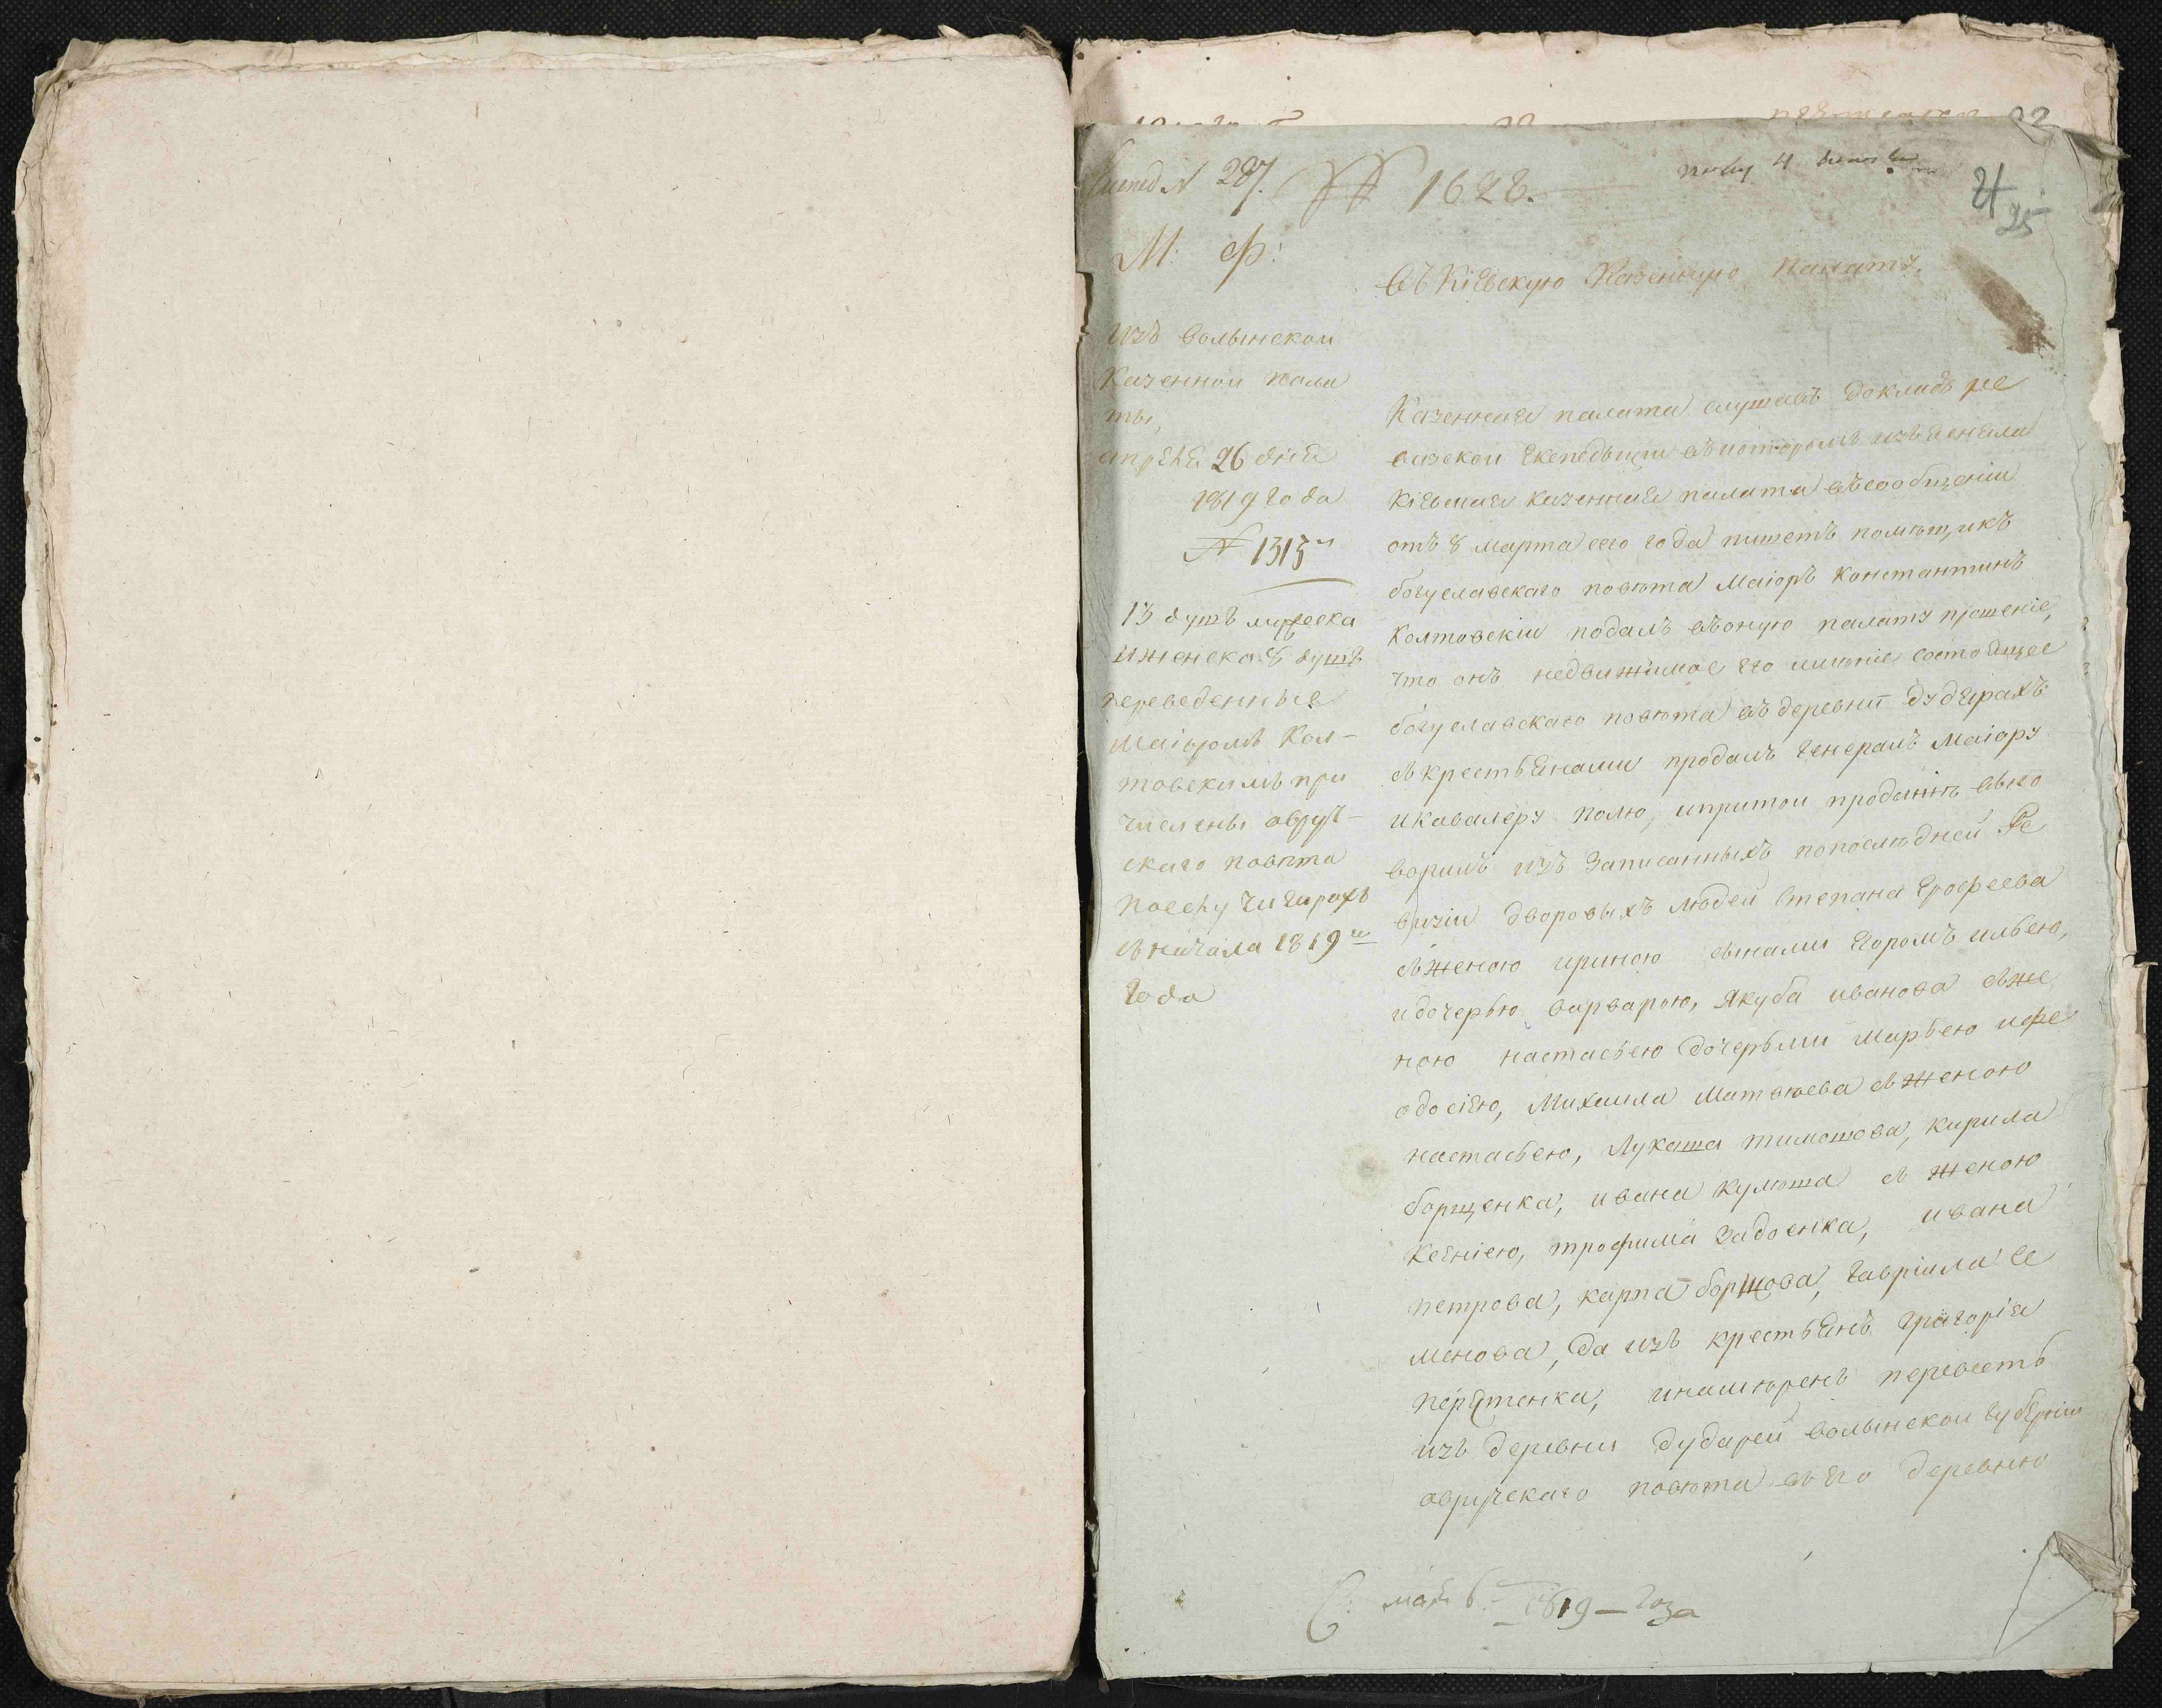 № 287.
№ 1628.
М: Ф:
Въ Кіевскую Казенную Палату.
изъ волынской
Казенной пала
ты,
апреля 26 дня
1819 года
№ 1313
13 душъ мужеска
и женска 8 душъ
переведенные
маіоромъ Кол-
товскимъ при
числены овруч-
скаго повѣта
съ начала 1819го
года
Казенная палата слушавъ докладъ ре
визской Експедиціи въ которомъ изъяснила
Кіевская казенная палата въ сообщеніи
отъ 8 марта сего года пишетъ помѣщикъ
богуславскаго повѣта Маіоръ Константинъ
Колтовскій подалъ въ оную палату прошеніе,
что онъ недвижимое его имѣніе состоящее
богуславскаго повѣта въ деревнѣ дударяхъ
съ крестьянами продалъ Генералъ Маіору
и кавалеру полю, и при той продажѣ выго
ворилъ изъ записанныхъ по послѣдней Ре
визіи дворовыхъ людей Степана Ерофеева
съ женою ириною сынами Егоромъ ильею,
и дочерью варварою, Якуба иванова съ же
ною настасьею дочерьми марьею и фе
одосією, Михаила Матвѣева съ женою
настасьею, Лукаша тимошова, Кирила
борщенка, ивана кулюша съ женою
ксенією, трофима Задоенка, ивана
петрова, карпа боршова, Гавріила Се
менова, да изъ крестьянъ Григорія
перятенка, и намѣренъ перевесть
изъ деревни дударей волынской губерніи
овручскаго повѣта въ его деревню
мая 6. 1819 – года
25